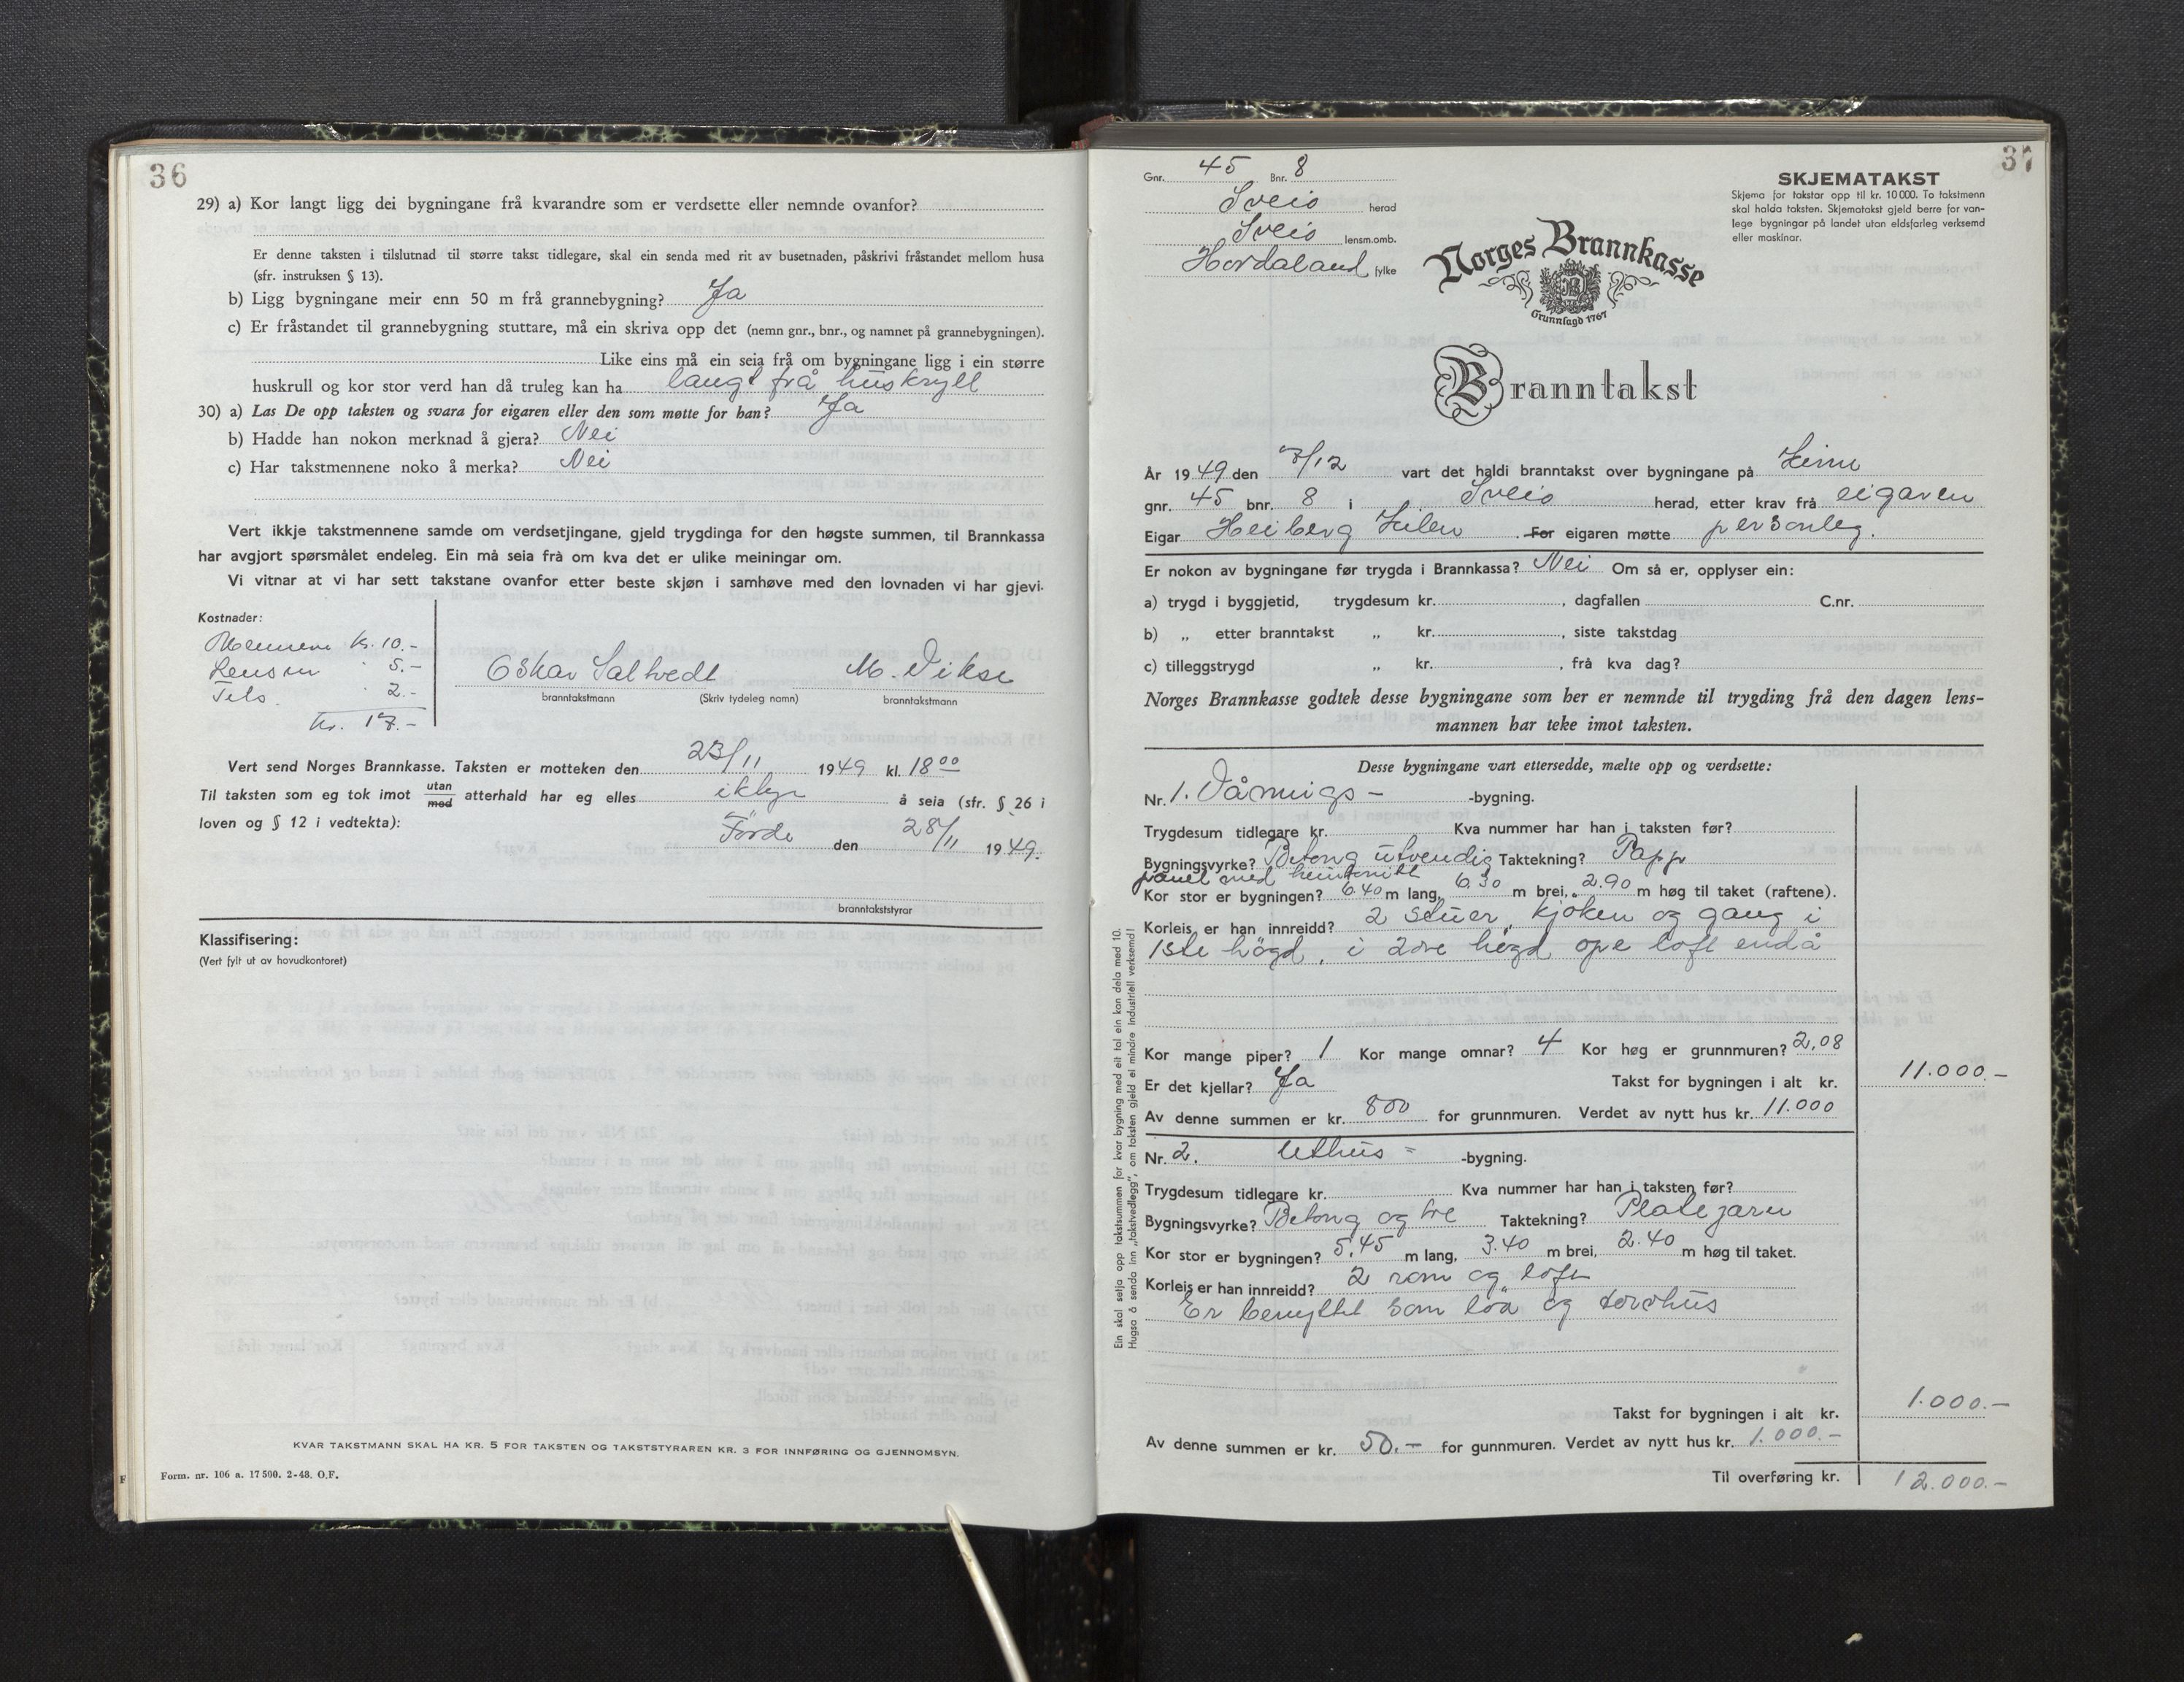 36
29) a) Kor langt ligg dei bygningane frå kvarandre som er verdsette eller nemnde ovanfor?
Er denne taksten i tilslutnad til større takst tidlegare, skal ein senda med rit av busetnaden, påskrivi fråstandet mellom husa
(sfr. instruksen § 13).
b) Ligg bygningane meir enn 50 m frå grannebygning? Ja
c) Er fråstandet til grannebygning stuttare, må ein skriva opp det (nemn gnr., bnr., og namnet på grannebygningen).
Like eins må ein seia frå om bygningane ligg i ein større
huskrull og kor stor verd han då truleg kan ha langt frå huskrull
30) a) Las De opp taksten og svara for eigaren eller den som møtte for han? Ja
b) Hadde han nokon merknad å gjera? Nei
c) Har takstmennene noko å merka? Nei
Vert ikkje takstmennene samde om verdsetjingane, gjeld trygdinga for den høgste summen, til Brannkassa
har avgjort spørsmålet endeleg. Ein må seia frå om kva det er ulike meiningar om.
Vi vitnar at vi har sett takstane ovanfor etter beste skjøn i samhøve med den lovnaden vi har gjevi.
Kostnader:
Mennene kr. 10.-
Lensm " 5.-
Tils. " 2.-
kr. 17.-
Oskar Saltvedt M. Vikse
branntakstmann (Skriv tydeleg namn) branntakstmann
Vert send Norges Brannkasse. Taksten er motteken den 23/11 1949 kl. 18 00
Til taksten som eg tok imot utan med atterhald har eg elles ikkje å seia (sfr. § 26 i
loven og § 12 i vedtekta):
Förde den 28/11 1949.
branntakststyrar
Klassifisering:
(Vert fylt ut av hovudkontoret)
KVAR TAKSTMANN SKAL HA KR. 5 FOR TAKSTEN OG TAKSTSTYRAREN KR. 3 FOR INNFØRING OG GJENNOMSYN.
F Form. nr. 106 a. 17 500. 2-48. O.F.
37
Gnr. 45 Bnr. 8
Sveio herad
Sveio lensm.omb.
Hordaland fylke
SKJEMATAKST
Skjema for takstar opp til kr. 10 000. To takstmenn
skal halda taksten. Skjematakst gjeld berre for van-
lege bygningar på landet utan eldsfarleg verksemd
eller maskinar.
Norges Brannkasse
Grunnlagd 1767
Branntakst
År 1949 den 7/12 vart det haldi branntakst over bygningane på
gnr. 45 bnr. 8 i Sveio herad, etter krav frå eigaren
Eigar Heiberg For eigaren møtte personleg.
Er nokon av bygningane før trygda i Brannkassa? Nei Om så er, opplyser ein:
a) trygd i byggjetid, trygdesum kr. , dagfallen C.nr.
b) „ etter branntakst „ kr. , siste takstdag
c) tilleggstrygd „ kr. , frå kva dag?
Norges Brannkasse godtek desse bygningane som her er nemnde til trygding frå den dagen lens-
mannen har teke imot taksten.
Desse bygningane vart ettersedde, mælte opp og verdsette:
Nr. 1. Vånings- -bygning.
Trygdesum tidlegare kr. Kva nummer har han i taksten før?
Bygningsvyrke? Betong utvendig Taktekning? Papp
panel med
Kor stor er bygningen? 6.40 m lang, 6.30 m brei, 2.90 m høg til taket (raftene).
Korleis er han innreidd? 2 stuer, kjøken og gang i
1ste högd, i 2dre högd ope loft endå
Kor mange piper? 1 Kor mange omnar? 4 Kor høg er grunnmuren? 2,08
Er det kjellar? Ja Takst for bygningen i alt kr. 11.000.-
Av denne summen er kr. 800 for grunnmuren. Verdet av nytt hus kr. 11.000
Nr. 2. Uthus- -bygning.
Trygdesum tidlegare kr. Kva nummer har han i taksten før?
Bygningsvyrke? Betong og tre Taktekning? Platejarn
Kor stor er bygningen? 5.45 m lang, 3.40 m brei, 2.40 m høg til taket.
Korleis er han innreidd? 2 rom og loft
Er benyttet som löa og torvhus
Takst for bygningen i alt kr. 1.000.-
Av denne summen er kr. 50.- for gunnmuren. Verdet av nytt hus kr. 1.000.-
Til overføring kr. 12.000.-
Ein skal setja opp takstsummen for kvar bygning med eit tal ein kan dela med 10.
Hugsa å senda inn „takstvedlegg", om taksten gjeld ei mindre industriell verksemd!